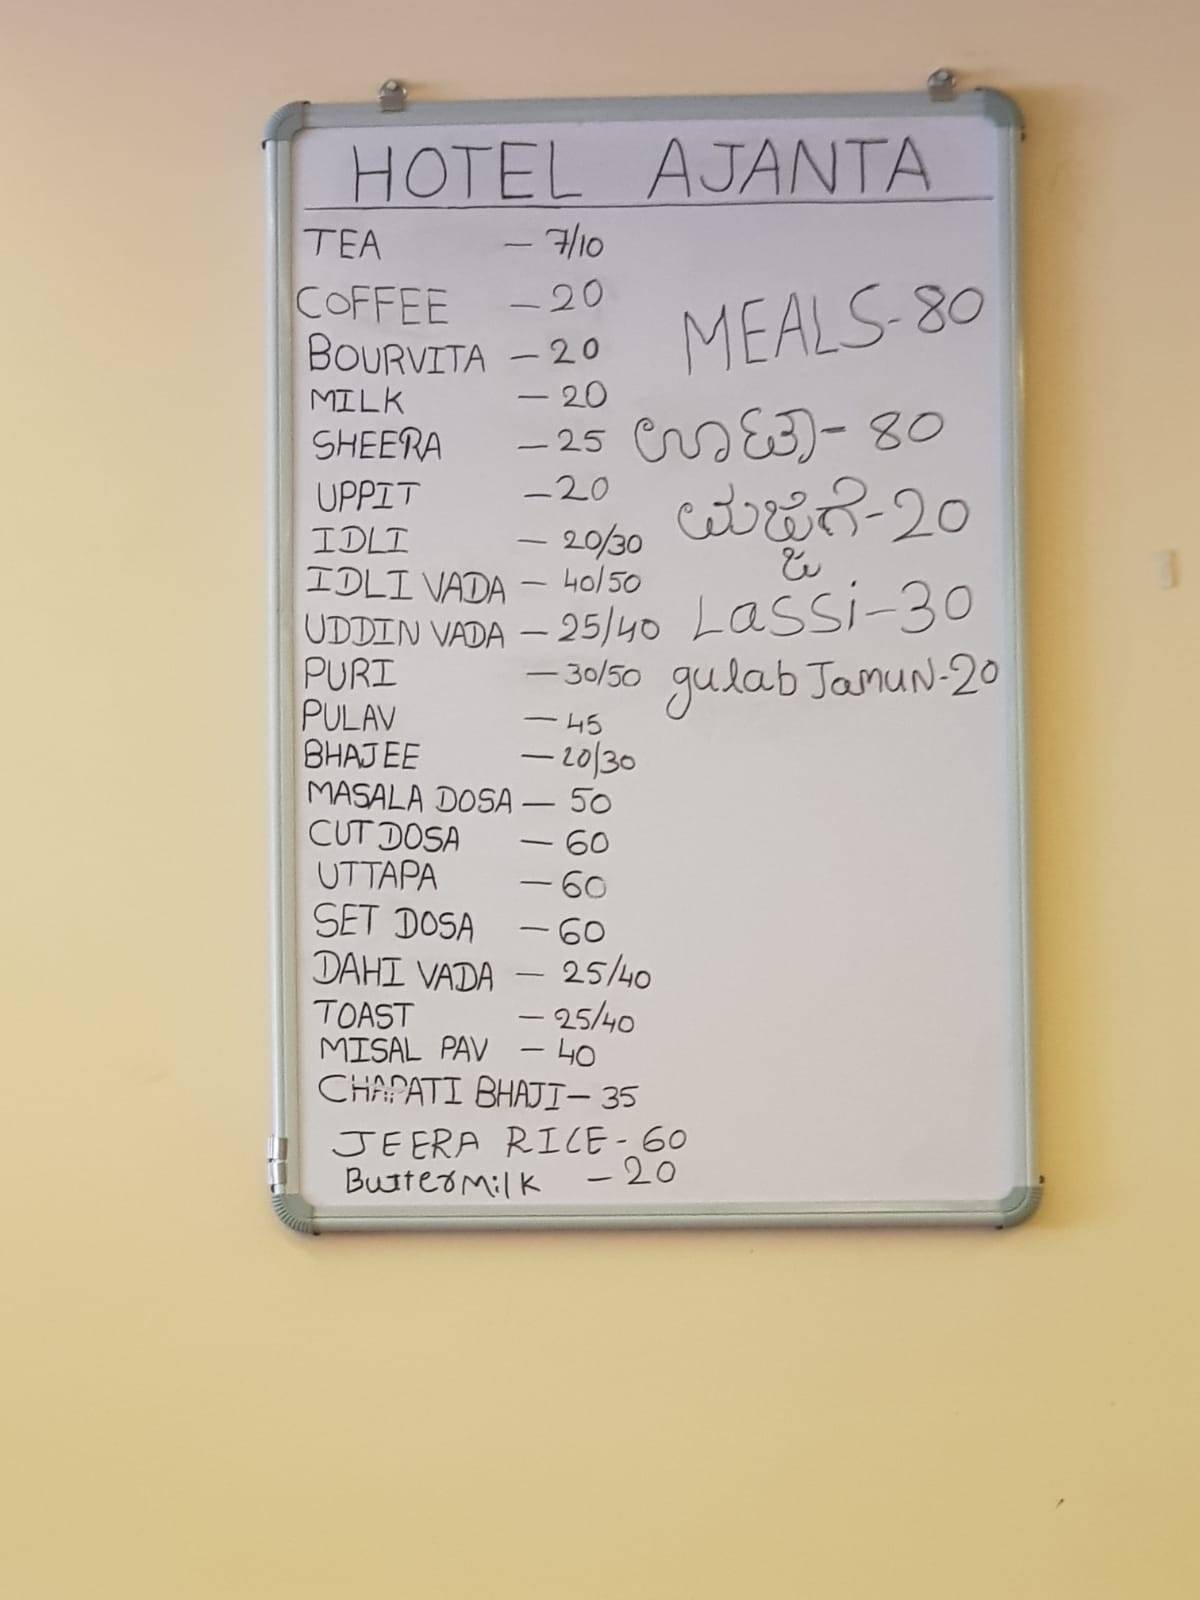 HOTEL AJANTA
TEA - 7/10
COFFEE - 20
BOURVITA - 20
MILK - 20
SHEERA - 25
UPPIT - 20
IDLI - 20/30
IDLI VADA - 40/50
UDDIN VADA - 25/40
PURI - 30/50
PULAV - 45
BHAJEE - 20/30
MASALA DOSA - 50
CUT DOSA - 60
UTTAPA - 60
SET DOSA - 60
DAHI VADA - 25/40
TOAST - 25/40
MISAL PAV - 40
CHAPATI BHAJI - 35
JEERA RICE - 60
ButterMilk - 20
MEALS - 80
ಊಟಾ - 80
ಮಜ್ಜಿಗೆ - 20
LaSSi - 30
gulab JamuN - 20